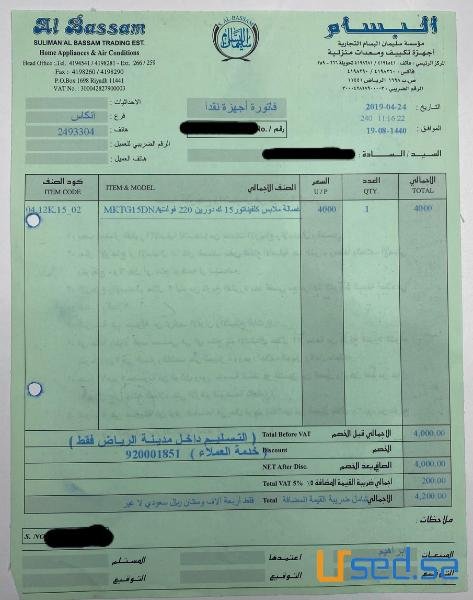 Al Bassam
البسام
SULIMAN AL BASSAM TRADING EST.
مؤسسة سليمان البسام التجارية
Home Appliances & Air Conditions
اجهزة تكييف ومعدات منزلية
Head Office :Tel. 4194541 / 4198281 - Ext. 266 / 259
Fax : 4198260 / 4198290
P.O.Box 1698 Riyadh 11441
VAT No : 300042827900003
AL-BASSAM
التاريخ : 2019-04-24
240 11:16:22
الموافق : 19-08-1440
فاتورة أجهزة نقدا
رقم / No. :
الاحداثيات :
فرع : انكاس
هاتف : 2493304
الرقم الضريبي للعميل :
هاتف العميل :
السيد / السادة :
كود الصنف الصنف الاجمالي السعر العدد الاجمالي
ITEM CODE ITEM & MODEL U / P QTY TOTAL
04.12K.15_02 MKTG15DNA غسالة ملابس كلفيناتور 15 ك دورين 220 فولت 4000 1 4000
( التسليم داخل مدينة الرياض فقط )
( خدمة العملاء ) 920001851
Total Before VAT الاجمالي قبل الخصم 4,000.00
Discount الخصم
NET After Disc. الصافي بعد الخصم 4,000.00
Total VAT 5% اجمالي ضريبة القيمة المضافة ٥% 200.00
فقط أربعة آلاف ومئتان ريال سعودي لا غير Total الاجمالي شامل ضريبة القيمة المضافة 4,200.00
ملاحظات :
S. NO
المبيعات : ابراهيم
اعتمدها
المستلم
التوقيع
التوقيع
Used.sa